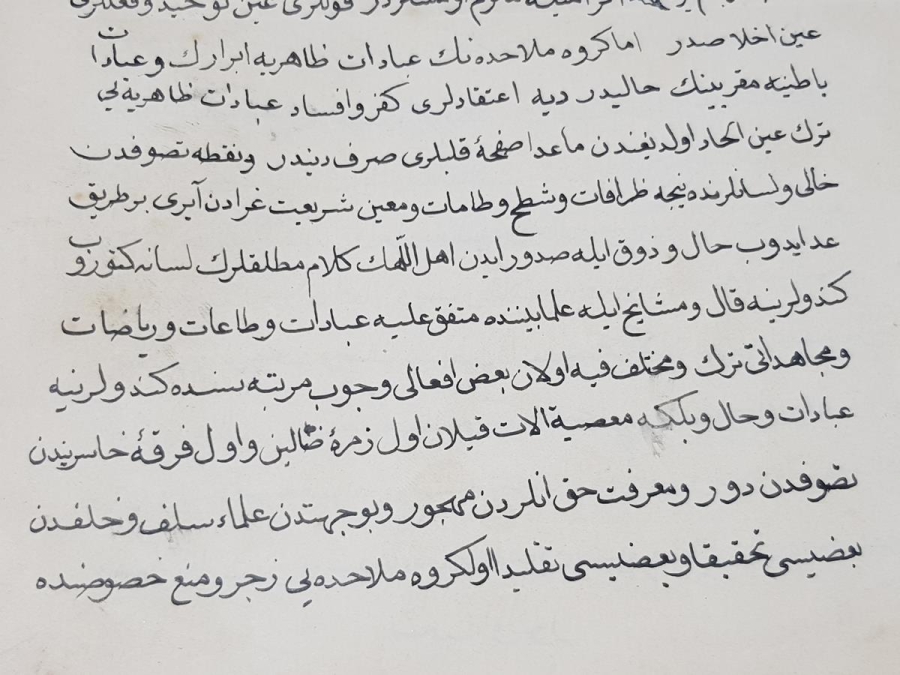 قوللرى عين توحيد وفعللرى
عين اخلاصدر اما كروه ملاحده نك عبادات ظاهريه ابرارك وعبادات
باطنيه مقربينك حاليدر ديه اعتقادلرى كفر وافساد عبادات ظاهريه يى
ترك عين الحاد اولديغندن ماعدا صفحهٔ قلبلرى صرف ديندر ونقطه تصوفدن
خالى ولسانلرنده نيجه ظرافات وشطح وطامات ومعين شريعت غرادن آيرى بر طريق
عد ايدوب حال وذوق ايله صدور ايدن اهل اللهك كلام مطلقلرك لسانه كتوروب
كندولرينه قال ومشايخ ايله علما بيننده متفق عليه عبادات وطاعات ورياضات
ومجاهداتى ترك ومختلف فيه اولان بعض افعالى وجوب مرتبه سنده كندولرنيه
عبادات وحال وبلكه معصية الات قيلان اول زمرهٔ ضالين واول فرقهٔ خاسريندن
تصوفدن دور ومعرفت حق انلردن مهجور وبوجهتدن علماء سلف وخلفدن
بعضيسى تحقيقا وبعضيسى تقليدا اولكروه ملاحده يى زجر ومنع خصوصنده